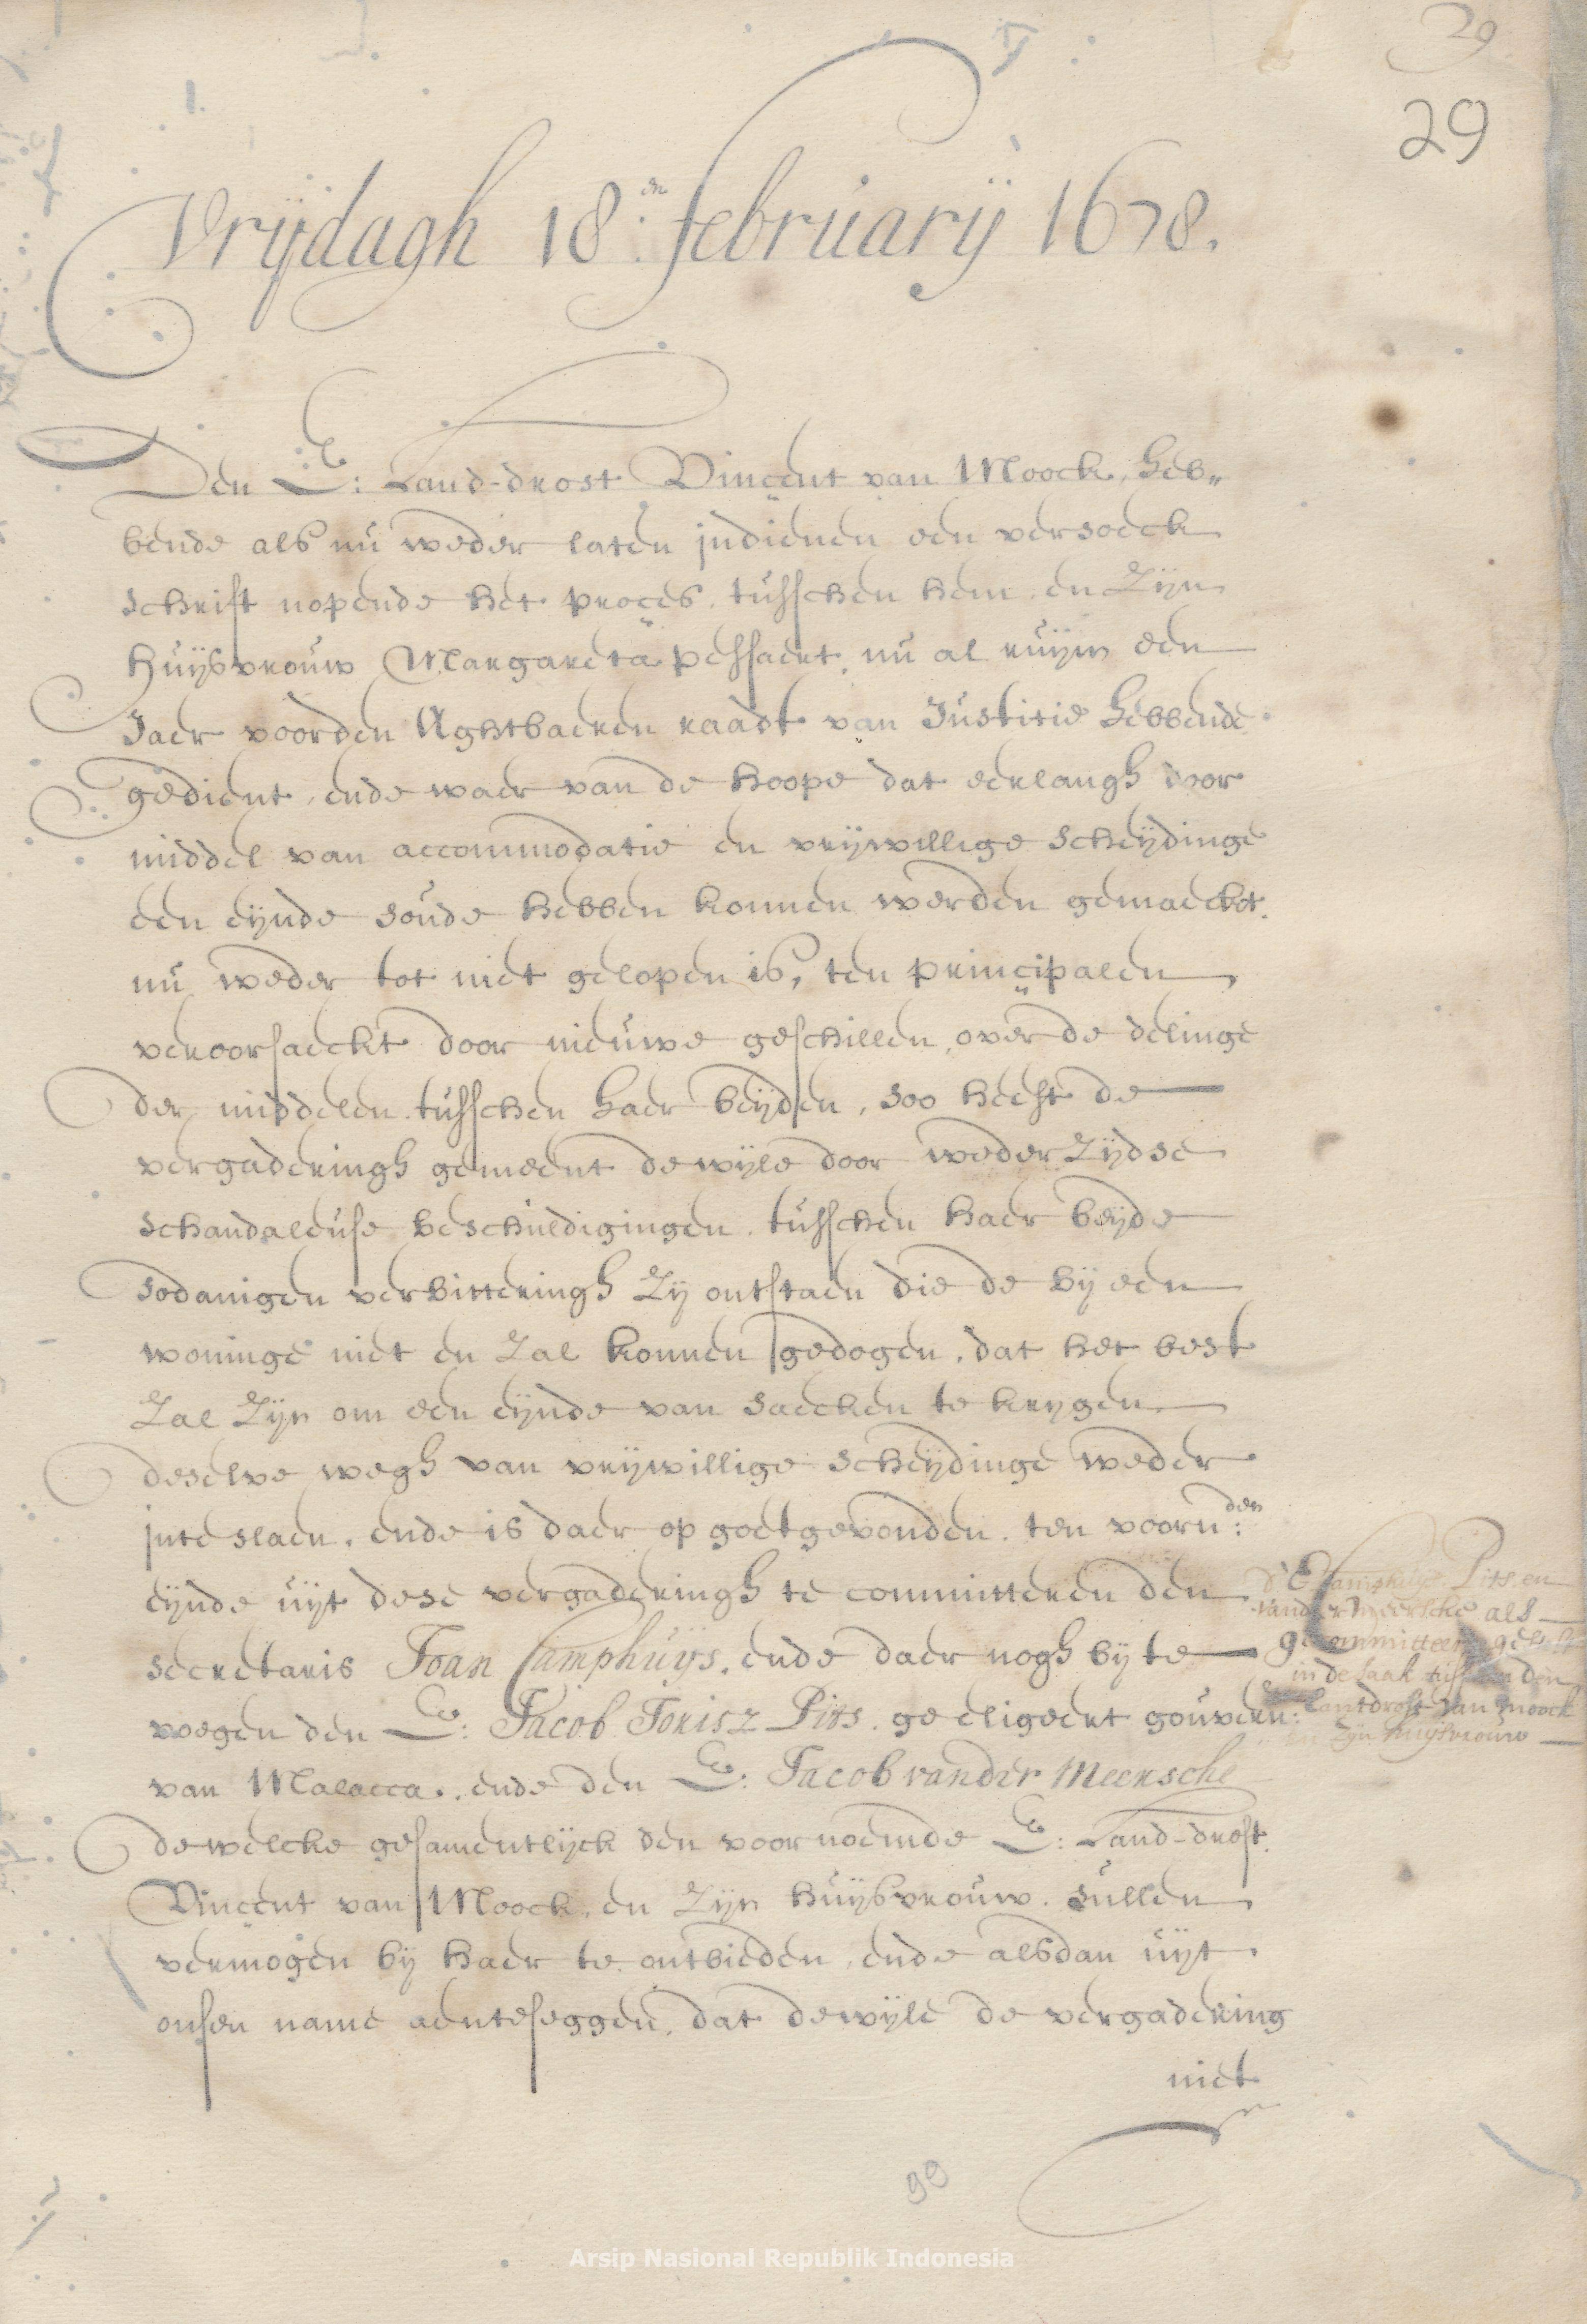 29
29
Vrijdagh 18:en februarij 1678.
Den E: Land-drost Vincent van Moock, heb„
bende als nu weder laten indienen een versoeck
schrift nopende het proces, tusschen hem en Zijn
huijsvrouw Margareta pelsaert, nu al ruijm een
Jaer voorden Aghtbaeren raadt van Justitie hebbende
gedient, ende waer van de hoope dat eerlangh door
middel van accommodatie en vrijwillige scheijdinge
een eijnde soude hebben konnen werden gemaeckt.
nu weder tot niet gelopen is, ten principalen
veroorsaeckt door nieuwe geschillen, over de delinge
der middelen tusschen haer beijden, soo heeft de
vergaderingh gemeent dewijle door weder Zijdse
schandaleuse beschuldigingen, tusschen haer beijde
sodanigen verbitteringh Zij ontstaen die de bij een
woninge niet en Zal konnen gedogen, dat het best
Zal Zijn om een eijnde van saecken te krygen
deselve wegh van vrijwillige scheijdinge weder
inte slaen, ende is daer op goetgevonden, ten voorn:den
eijnde uijt dese vergaderingh te committeren den
secretaris Joan Camphuijs, ende daer nogh bij te
voegen den E: Jacob Jorisz Pits, geeligeert gouvern:
van Malacca, ende den E: Jacob vander Meersche
dewelcke gesamentlijck den voornoemde E: Land-drost
Vincent van Moock, en Zijn huijsvrouw, sullen
vermogen bij haer te ontbieden, ende alsdan uijt
onsen name aenteseggen, dat dewijle de vergadering
niet
d'E Camphuijs Pits en
vander Meersche als
gecommitteerd
in de saak tusschen den
Lantdrost van moock
en Zijn huijsvrouw
99
Arsip Nasional Republik Indonesia